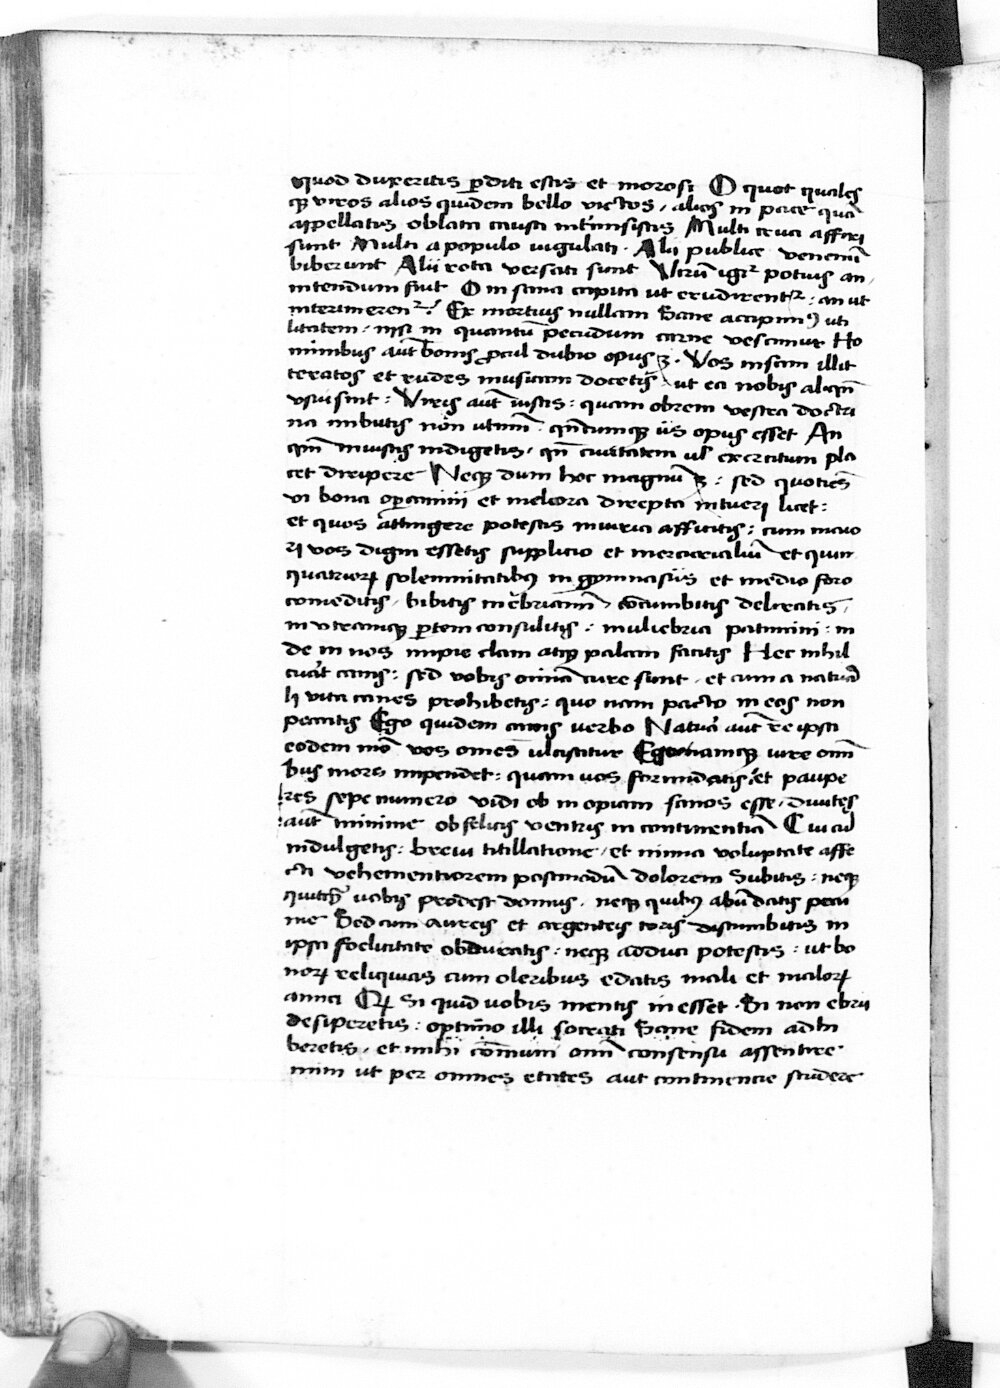 quod duxeritis ꝑditi estis et morosi O quot quales
qꝫ viros alios quidem bello victos, alios in pace quā
appellatis oblata causa intimsistis Multi cruci affixi
sunt Multi a populo iugulati. Alii publice venenū
biberunt Alii rota versati sunt Utrū igr̄ potius an,
intendum fuit O insana capita ut erudirentr̄: an ut
interimerenr̄? Ex mortuis nullam Sane accipimꝰ uti
litatem, nisi in quantū pecudum carne vescimur Ho
minibus aut̄ bonis ꝓcul dubio opusꝫ. Vos insam illit
teratos et rudes musicam docetis, ut ea nobis aliqn̄
usui sint: Viris aut̄ iustis: quam obrem vestra doctri
na imbutis non utimī qn̄cumqꝫ iis opus esset An
qm̄ iniustis indigetis, qn̄ civitatem ul' exercitum pla
cet diripere Neqꝫ dum hoc magnū ꝫ: sed quotiēs
vi bona opͣamini et meliora direpta intueri licet:
et quos attingere potestis iniuria afficitis: cum maio
ri vos digni essetis supplicio et mercurialiū et quin
quatrioꝝ solemnitatibꝰ in gymnasiis et medio foro
comeditis, bibitis inebriamī, cōcumbitis deliratis,
in utramqꝫ ꝑtem consulitis: muliebria patimini: in
de in nos impie clam atqꝫ palam facitis Hec nihil
curāt canis: sed vobis omīa cure sunt, et cum a naturā
li vita canes prohibetis: quo nam pacto in eos non
peccatis Ego quidem canis verbo Natura aut̄ re ipsa
eodem mō vos omēs ulciscitur Ego namqꝫ iure omī
bus mors impendet: quam vos formidatis: et paupe
res sepe numero vidi ob inopiam sanos esse, divites
aut̄ minime ob felicis ventris incontinentiā Cui cū
indulgetis: brevi titillatione, et nimia voluptate affe
cti vehementiorem postmodū dolorem Subitis: neqꝫ
vobis prodest domus, neqꝫ quibꝰ abūdatis pecu
nie Sed cum aureis et argenteis toris discumbitis in
ipsa foelicitate obduratis: neqꝫ adduci potestis: ut bo
noꝝ reliquias cum oleribus edatis mali et maloꝝ
amici Qꝫ Si quid vobis mentis inesset. Si non ebrii
desiperetis: optimo illi socrati Sane fidem adhi
beretis, et mihi cōmuni omī consensu assentire
mini ut per omnes etates aut continencie studere